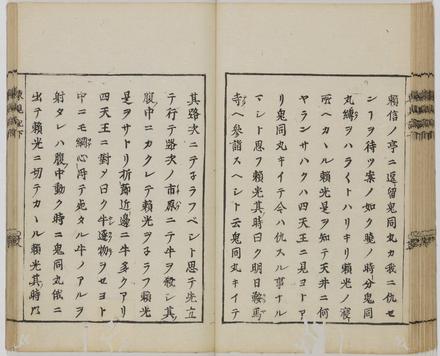 頼信ノ亭ニ逗留鬼同丸カ我ニ仇セ
ンヿヲ待ツ案ノ如ク曉ノ時分鬼同
丸縛ヲハラ〱トハリキリ頼光ノ寢
所ヘカヽル頼光是ヲ知テ天井ニ何
ヤランサハクハ四天王ニ見ヨトア
リ鬼同丸キイテ今ハ仇スル事ナル
マシト思フ頼光其時曰ク明日鞍馬
寺ヘ參詣スヘシト云鬼同丸キイテ
其路次ニテ子ラフベシト思テ先立
テ行テ路次ノ市原ニテ牛ヲ殺シ其
腹中ニカクレテ頼光ヲ子ラフ頼光
是ヲサトリ折節近邊ニ牛多クアリ
四天王ニ對メ曰ク牛逐物ヲセヨト
中ニモ綱心得テ死タル牛ノアルヲ
射タレハ腹中動ク時ニ鬼同丸俄ニ
出テ頼光ニ切テカヽル頼光其時